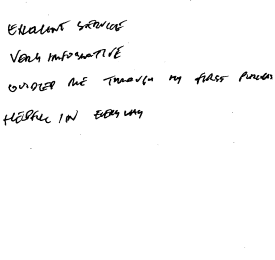 EXCELLENT SERVICE
VERY INFORMATIVE
GUIDED ME THROUGH MY FIRST
HELPFUL IN EVERY WAY